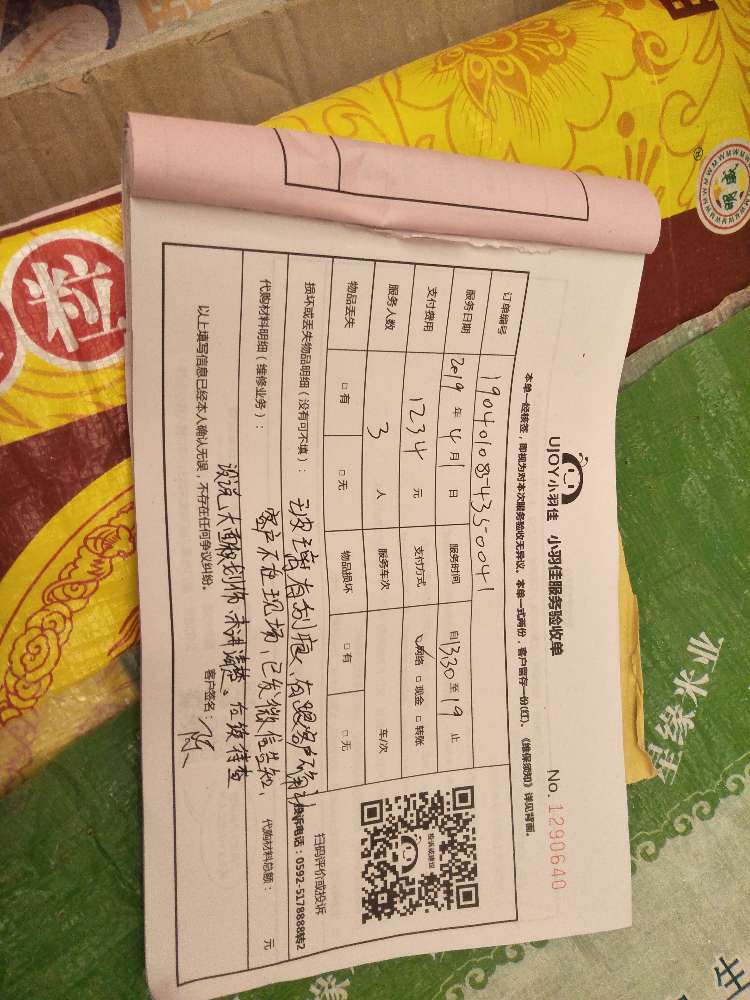 UJOY小羽佳 小羽佳服务验收单
No. 1290640
本单一经核签，即视为对本次服务验收无异议。本单一式两份，客户留存一份(红)。《维保须知》详见背面。
订单编号 1904010854350041
服务日期 2019 年 4 月 1 日 服务时间 自 1330 至 19 止
支付费用 1234 元 支付方式 ☑网络 □现金 □转账
服务人数 3 人 服务车次 车/次
物品丢失 □有 □无 物品损坏 □有 □无
扫码评价或投诉
投诉电话：0592-5178888转2
损坏或丢失物品明细（没有可不填）： 玻璃有划痕，有跟客户确认
客户不在现场，已发微信告知，
代购材料明细（维修业务）： 代购材料总额： 元
没说大面积划伤 未讲清楚。在核待查
以上填写信息已经本人确认无误，不存在任何争议纠纷。 客户签名：
粒
星缘米业